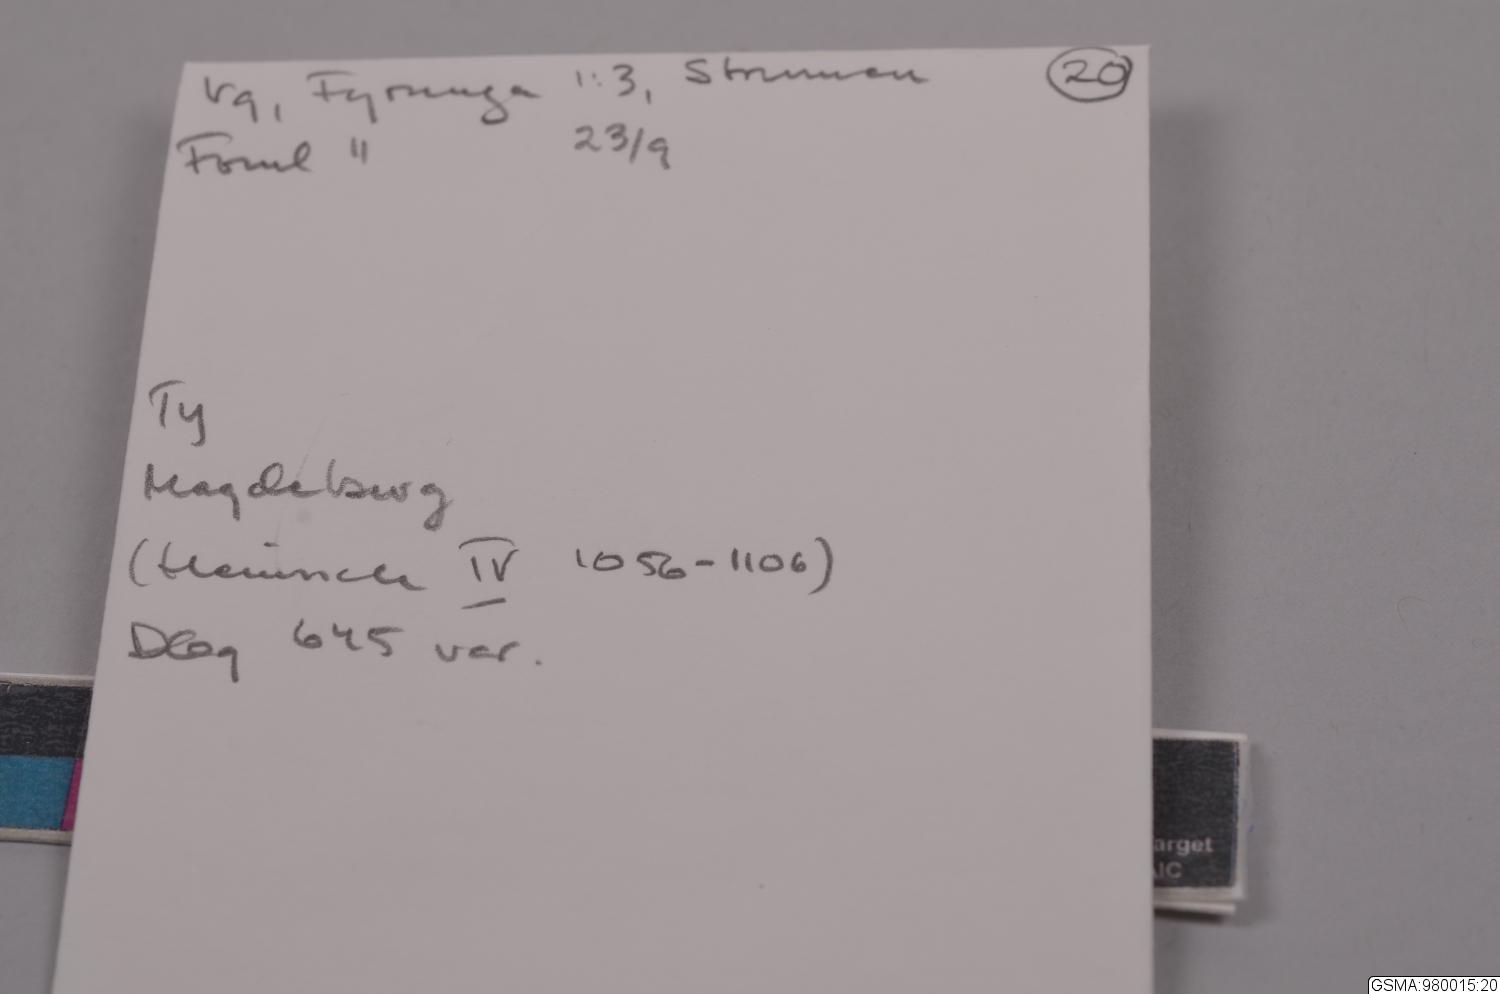 Vg, Fyrunga 1:3, Strumman 20
Fornl " 23/9
Ty
Magdeburg
(Heinrich IV 1056-1106)
Dbg 645 var.
arget
AIC
GSMA:980015:20